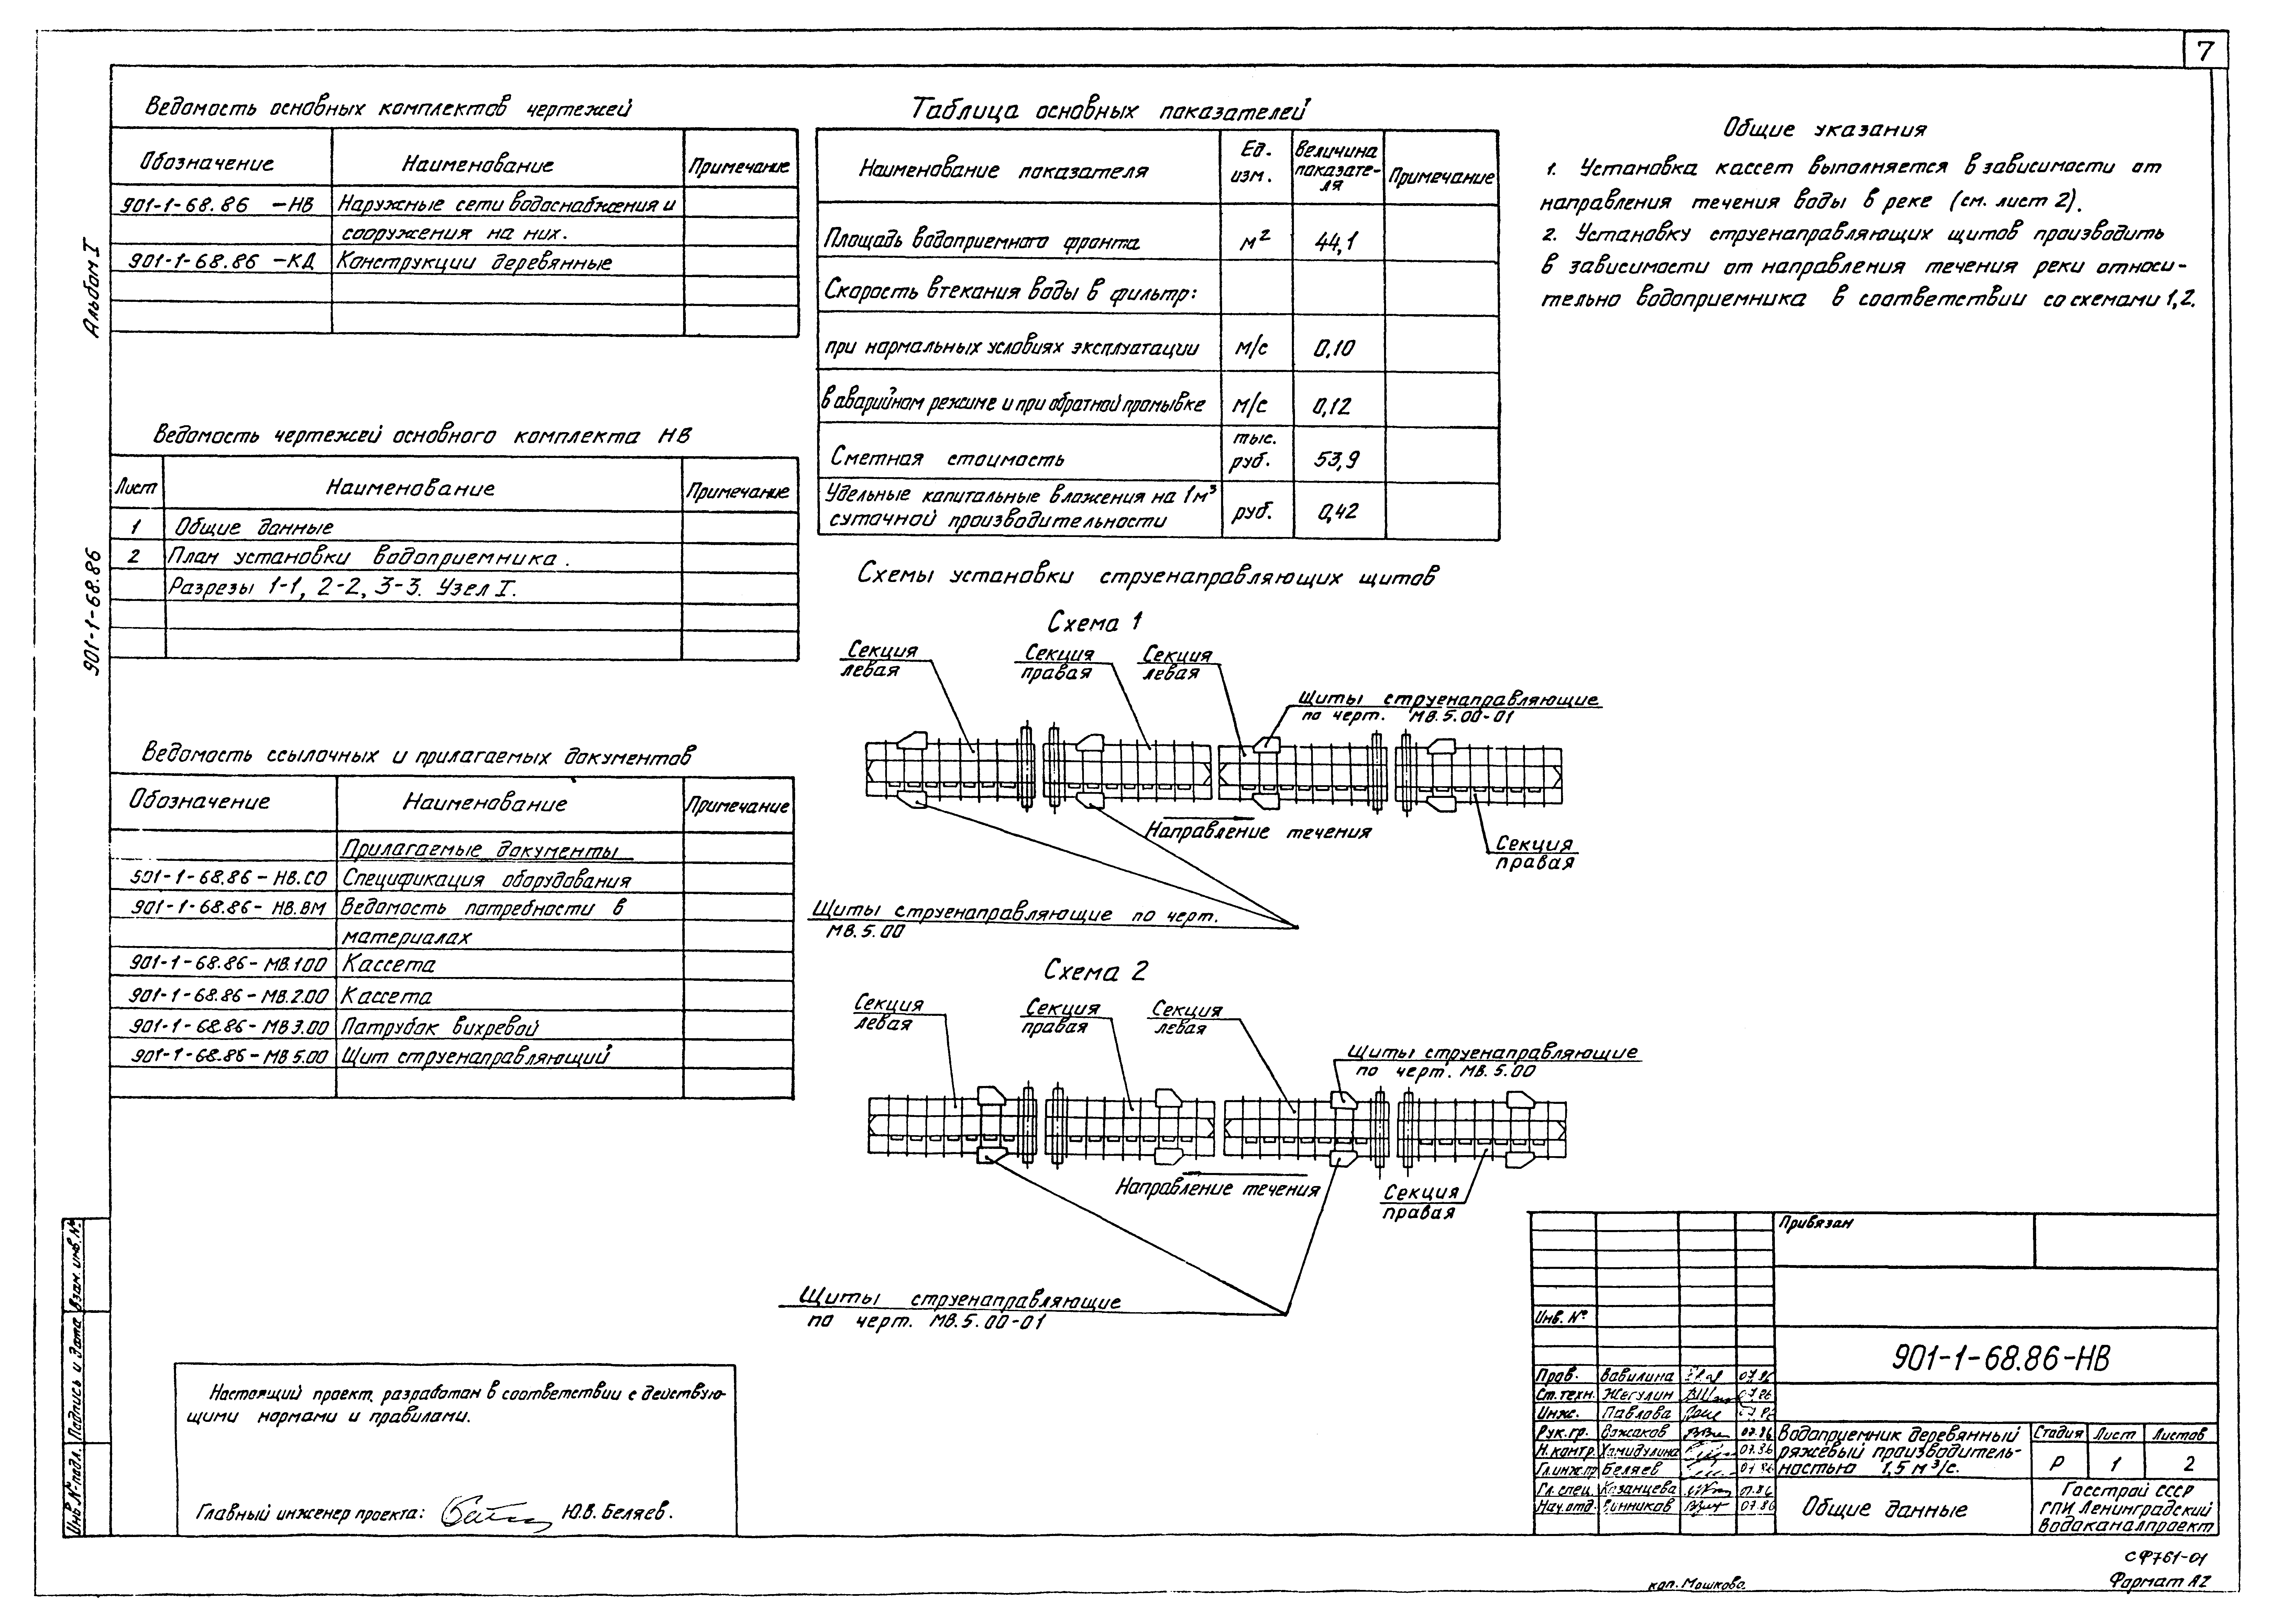 7
Альбом I
901-1-68.86
Ведомость основных комплектов чертежей
Обозначение Наименование Примечание
901-1-68.86 -НВ Наружные сети водоснабжения и
сооружения на них.
901-1-68.86 -КД Конструкции деревянные
Ведомость чертежей основного комплекта НВ
Лист Наименование Примечание
1 Общие данные
2 План установки водоприемника.
Разрезы 1-1, 2-2, 3-3. Узел I.
Ведомость ссылочных и прилагаемых документов
Обозначение Наименование Примечание
Прилагаемые документы
901-1-68.86-НВ.СО Спецификация оборудования
901-1-68.86-НВ.ВМ Ведомость потребности в
материалах
901-1-68.86-МВ.1.00 Кассета
901-1-68.86-МВ.2.00 Кассета
901-1-68.86-МВ3.00 Патрубок вихревой
901-1-68.86-МВ5.00 Щит струенаправляющий
Настоящий проект разработан в соответствии с действую-
щими нормами и правилами.
Главный инженер проекта: Ю.В. Беляев.
Таблица основных показателей
Наименование показателя Ед. изм. Величина показате-ля Примечание
Площадь водоприемного фронта м² 44,1
Скорость втекания воды в фильтр:
при нормальных условиях эксплуатации м/с 0,10
в аварийном режиме и при обратной промывке м/с 0,12
Сметная стоимость тыс. руб. 53,9
Удельные капитальные вложения на 1м³
суточной производительности руб. 0,42
Схемы установки струенаправляющих щитов
Схема 1
Секция левая
Секция правая
Секция левая
Щиты струенаправляющие
по черт. МВ.5.00-01
Направление течения
Секция правая
Щиты струенаправляющие по черт.
МВ.5.00
Схема 2
Секция левая
Секция правая
Секция левая
Щиты струенаправляющие
по черт. МВ.5.00
Направление течения
Секция правая
Щиты струенаправляющие
по черт. МВ.5.00-01
Общие указания
1. Установка кассет выполняется в зависимости от
направления течения воды в реке (см. лист 2).
2. Установку струенаправляющих щитов производить
в зависимости от направления течения реки относи-
тельно водоприемника в соответствии со схемами 1,2.
Привязан
Инв. №
901-1-68.86-НВ
Пров. Вавилина 07.86
Ст.техн. Жегулин 07.86
Инж. Павлова
Рук.гр. 07.86
Н.контр. Хамидулина 07.86
Гл.инж.пр Беляев 07.86
Гл.спец. Казанцева 07.86
Нач.отд. Винников 07.86
Водоприемник деревянный
ряжевый производитель-
ностью 1,5 м³/с.
Стадия Лист Листов
Р 1 2
Общие данные
Госстрой СССР
ГПИ Ленинградский
Водоканалпроект
Инв № подл. Подпись и дата Взам. инв. №
СФ761-01
кап. Мошкова
Формат А2